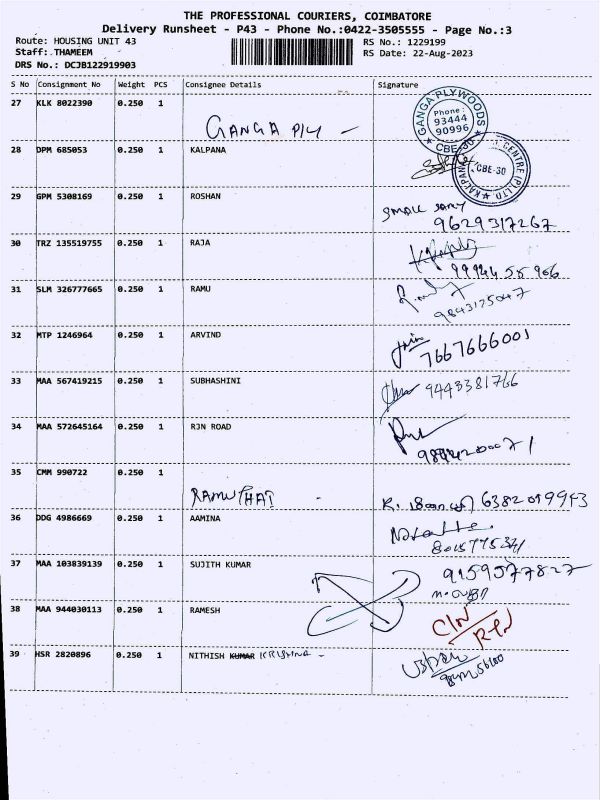 THE PROFESSIONAL COURIERS, COIMBATORE
Delivery Runsheet - P43 - Phone No.:0422-3505555 - Page No.:3
Route: HOUSING UNIT 43 RS No.: 1229199
Staff: THAMEEM RS Date: 22-Aug-2023
DRS No.: DCJB122919903
S No Consignment No Weight PCS Consignee Details Signature
27 KLK 8022390 0.250 1 GANGA PLY -
GANGA PLYWOODS Phone: 93444 90996 CBE-30
28 DPM 685053 0.250 1 KALPANA
CENTRE (P) LTD. KALPANA CBE-30
29 GPM 5308169 0.250 1 ROSHAN
9629317267
30 TRZ 135519755 0.250 1 RAJA
99944 55 966
31 SLM 326777665 0.250 1 RAMU
9843175047
32 MTP 1246964 0.250 1 ARVIND
7667666001
33 MAA 567419215 0.250 1 SUBHASHINI
9443381766
34 MAA 572645164 0.250 1 RJN ROAD
35 CMM 990722 0.250 1
RAMU THAI - 6382019943
36 DDG 4986669 0.250 1 AAMINA
37 MAA 103839139 0.250 1 SUJITH KUMAR 9159577827
38 MAA 944030113 0.250 1 RAMESH
39 HSR 2820896 0.250 1 NITHISH KUMAR KRISHNA -